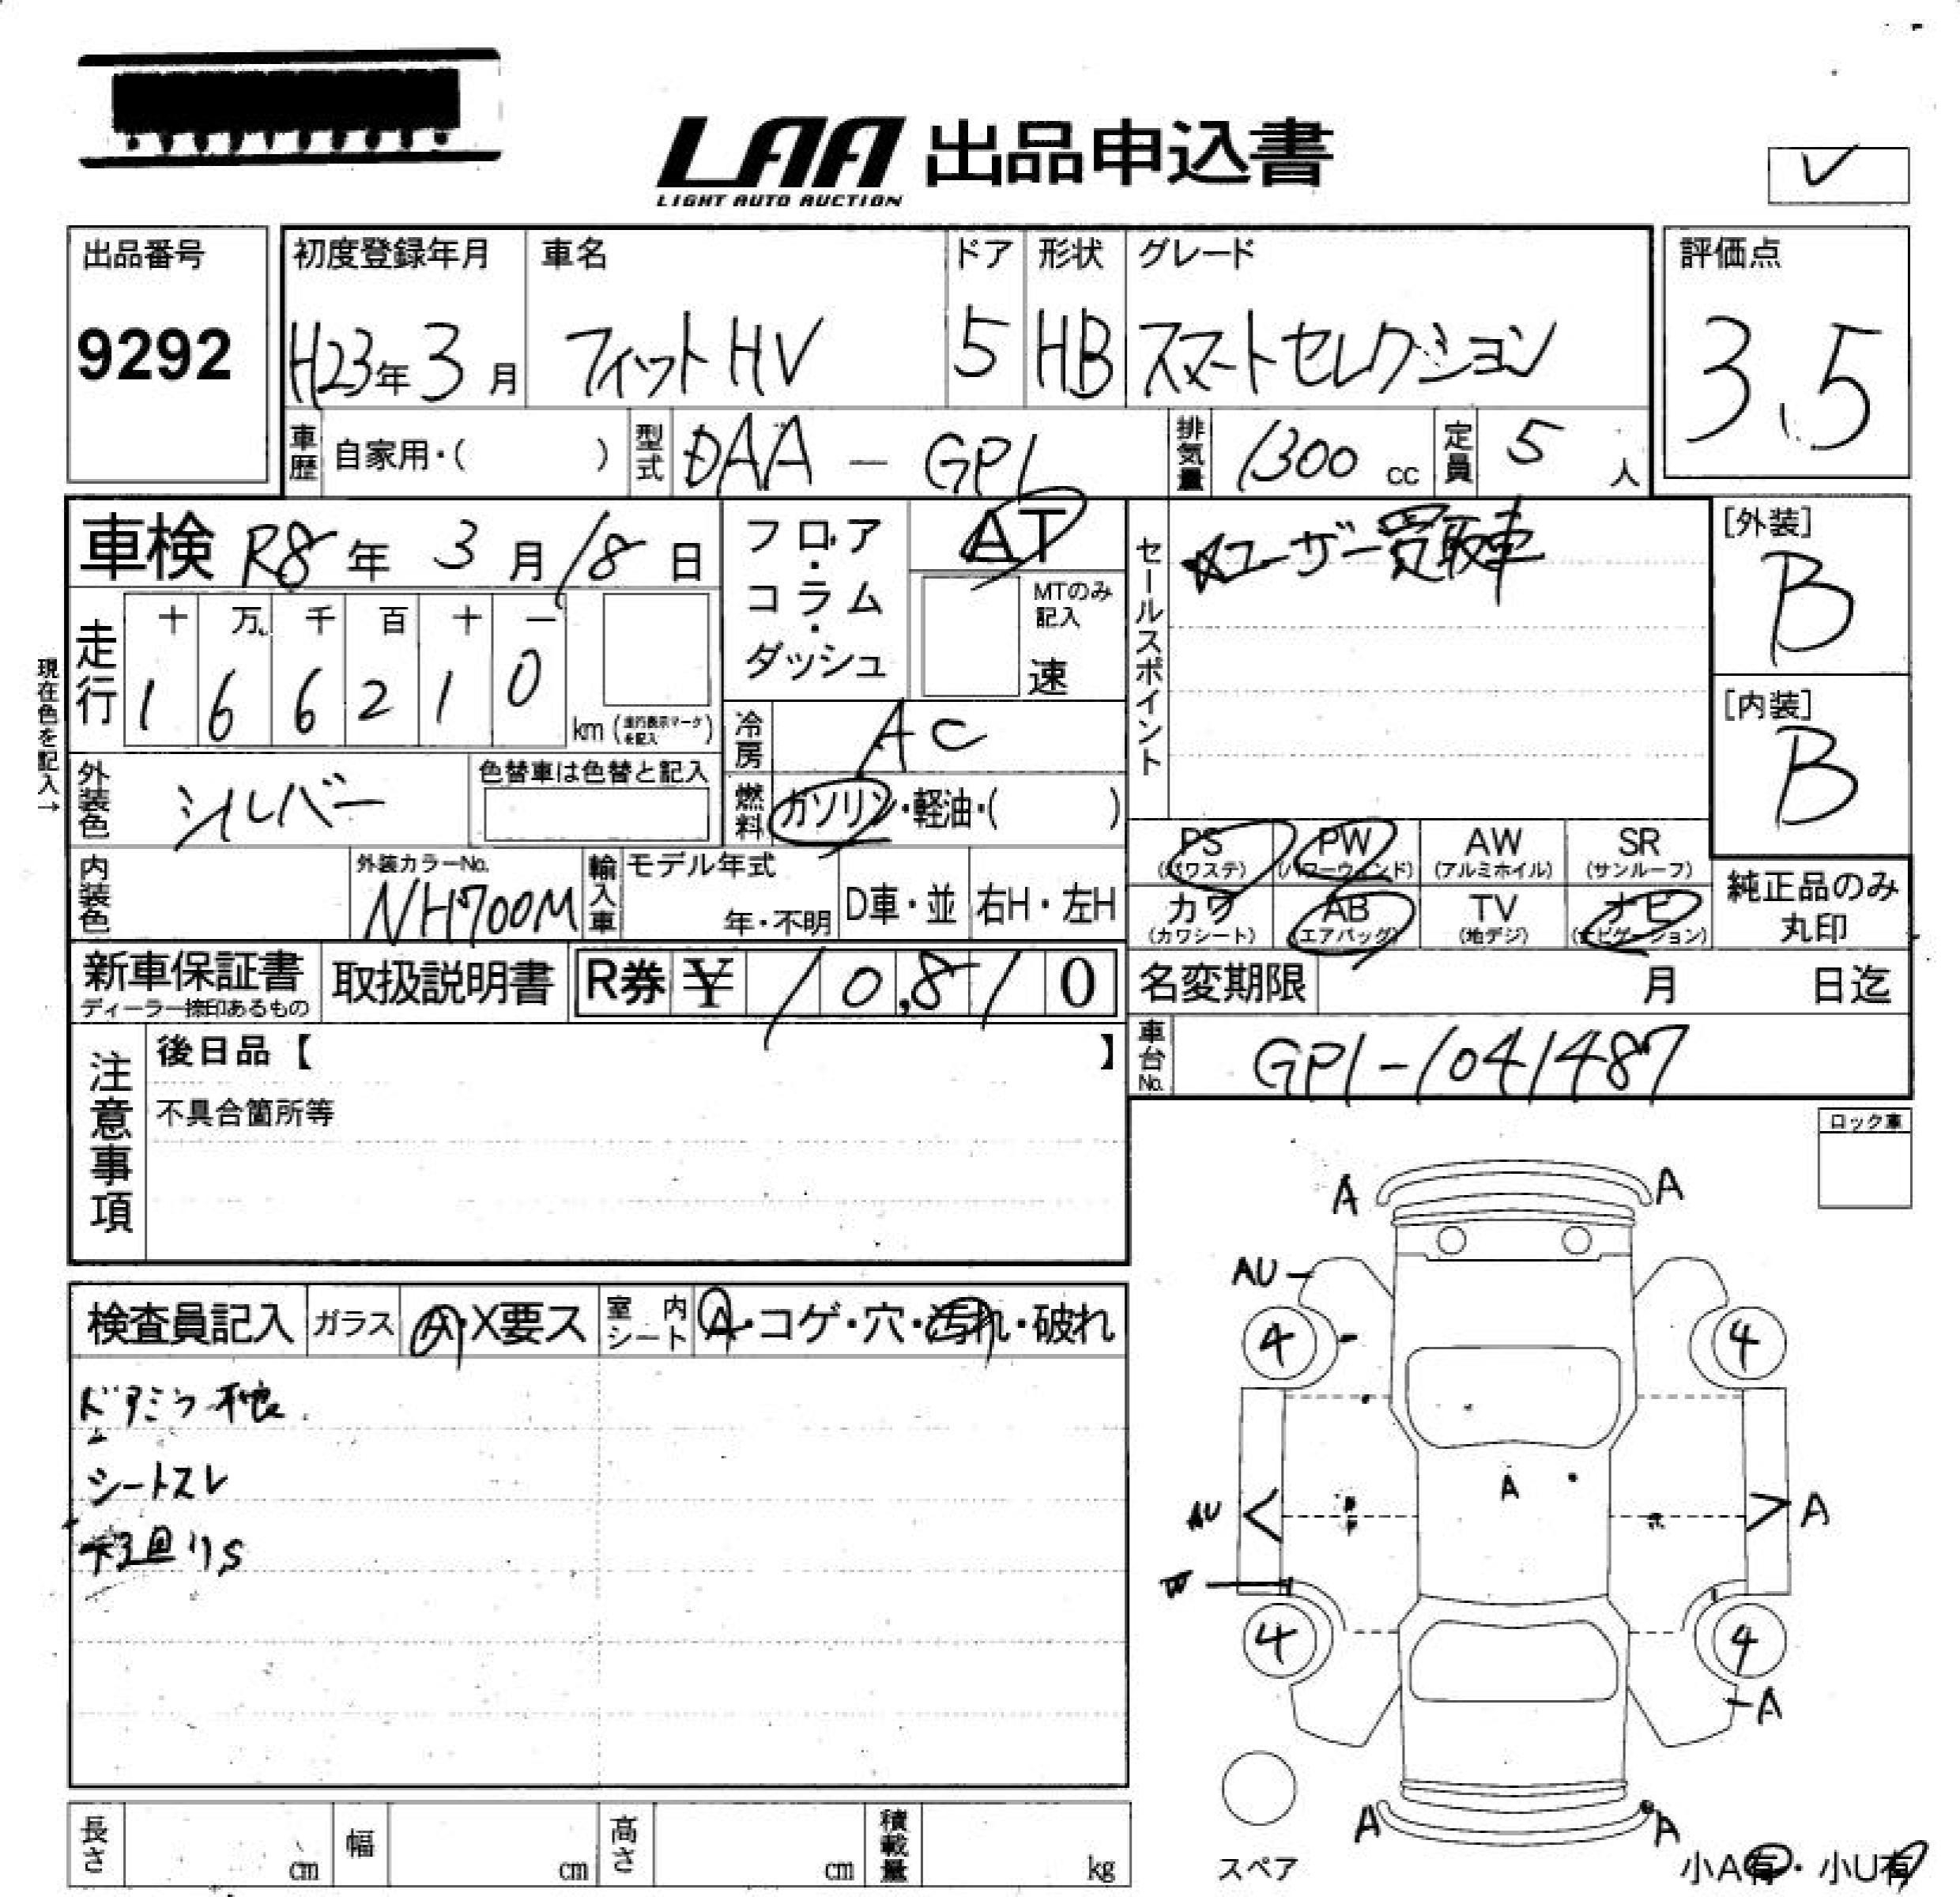 LAA 出品申込書
LIGHT AUTO AUCTION
出品番号
9292
初度登録年月
H23年3月
車名
フィットHV
ドア
5
形状
HB
グレード
スマートセレクション
評価点
3.5
車歴 自家用・( )
型式 DAA - GP1
排気量 1300 cc
定員 5 人
車検 R8年 3月18日
フロア・コラム・ダッシュ
AT
MTのみ記入
速
セールスポイント
ユーザー買取車
[外装]
B
[内装]
B
現在色を記入→
走行 十 万 千 百 十 一
1 6 6 2 1 0
km (走行表示マークを記入)
冷房 AC
燃料 ガソリン・軽油・( )
外装色 シルバー
色替車は色替と記入
内装色
外装カラーNo.
NH700M
輸入車
モデル年式
年・不明
D車・並
右H・左H
PS (パワステ)
PW (パワーウィンド)
AW (アルミホイル)
SR (サンルーフ)
カワ (カワシート)
AB (エアバッグ)
TV (地デジ)
ナビ (ナビゲーション)
純正品のみ丸印
新車保証書
ディーラー捺印あるもの
取扱説明書
R券 ¥ 10,810
名変期限 月 日迄
車台No. GP1-1041487
注意事項
後日品【 】
不具合箇所等
ロック車
検査員記入
ガラス A・X要ス
室内シート A・コゲ・穴・汚れ・破れ
ドアミラー不良
シートスレ
下廻りS
A A
AU
4 4
A
AU A
W
4 4
A
A A
スペア
小A有・小U有
長さ cm
幅 cm
高さ cm
積載量 kg